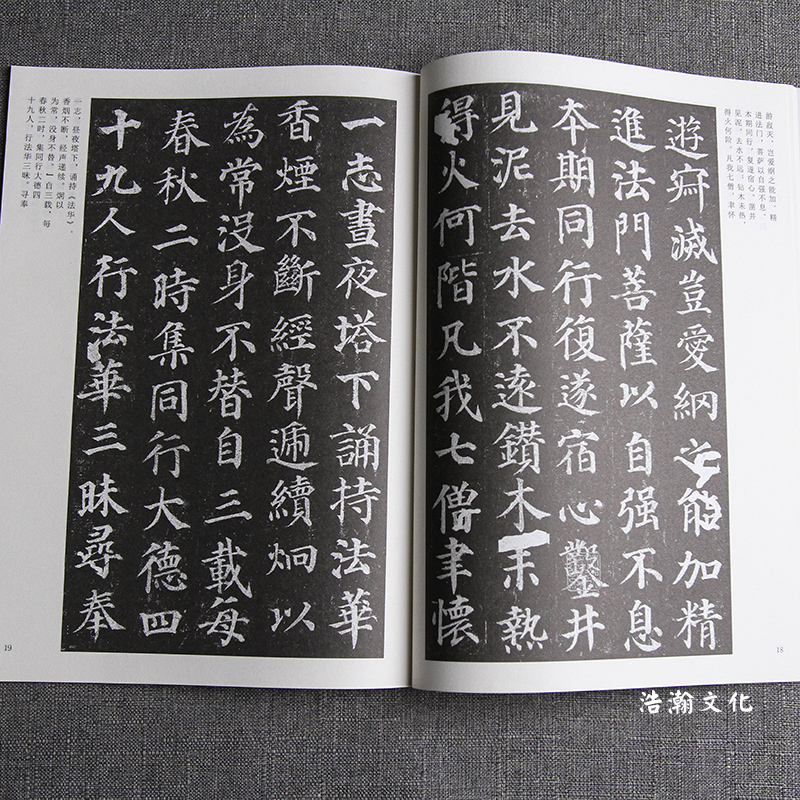 遊寂滅豈愛網之能加精
進法門菩薩以自强不息
本期同行復遂宿心鑿井
見泥去水不遠鑽木未熱
得火何階凡我七僧聿懷
游寂灭，岂爱纲之能加，精
进法门，菩萨以自强不息，
本期同行，复遂宿心，凿井
见泥，去水不远；钻木未热，
得火何阶，凡我七僧，聿怀
18
一志晝夜塔下誦持法華
香煙不斷經聲遞續炯以
為常沒身不替自三載每
春秋二時集同行大德四
十九人行法華三昧尋奉
一志，昼夜塔下，诵持《法华》。
香烟不断，经声递续，炯以
为常，没身不替。自三载，每
春秋二时，集同行大德四
十九人，行法华三昧。寻奉
19
浩瀚文化